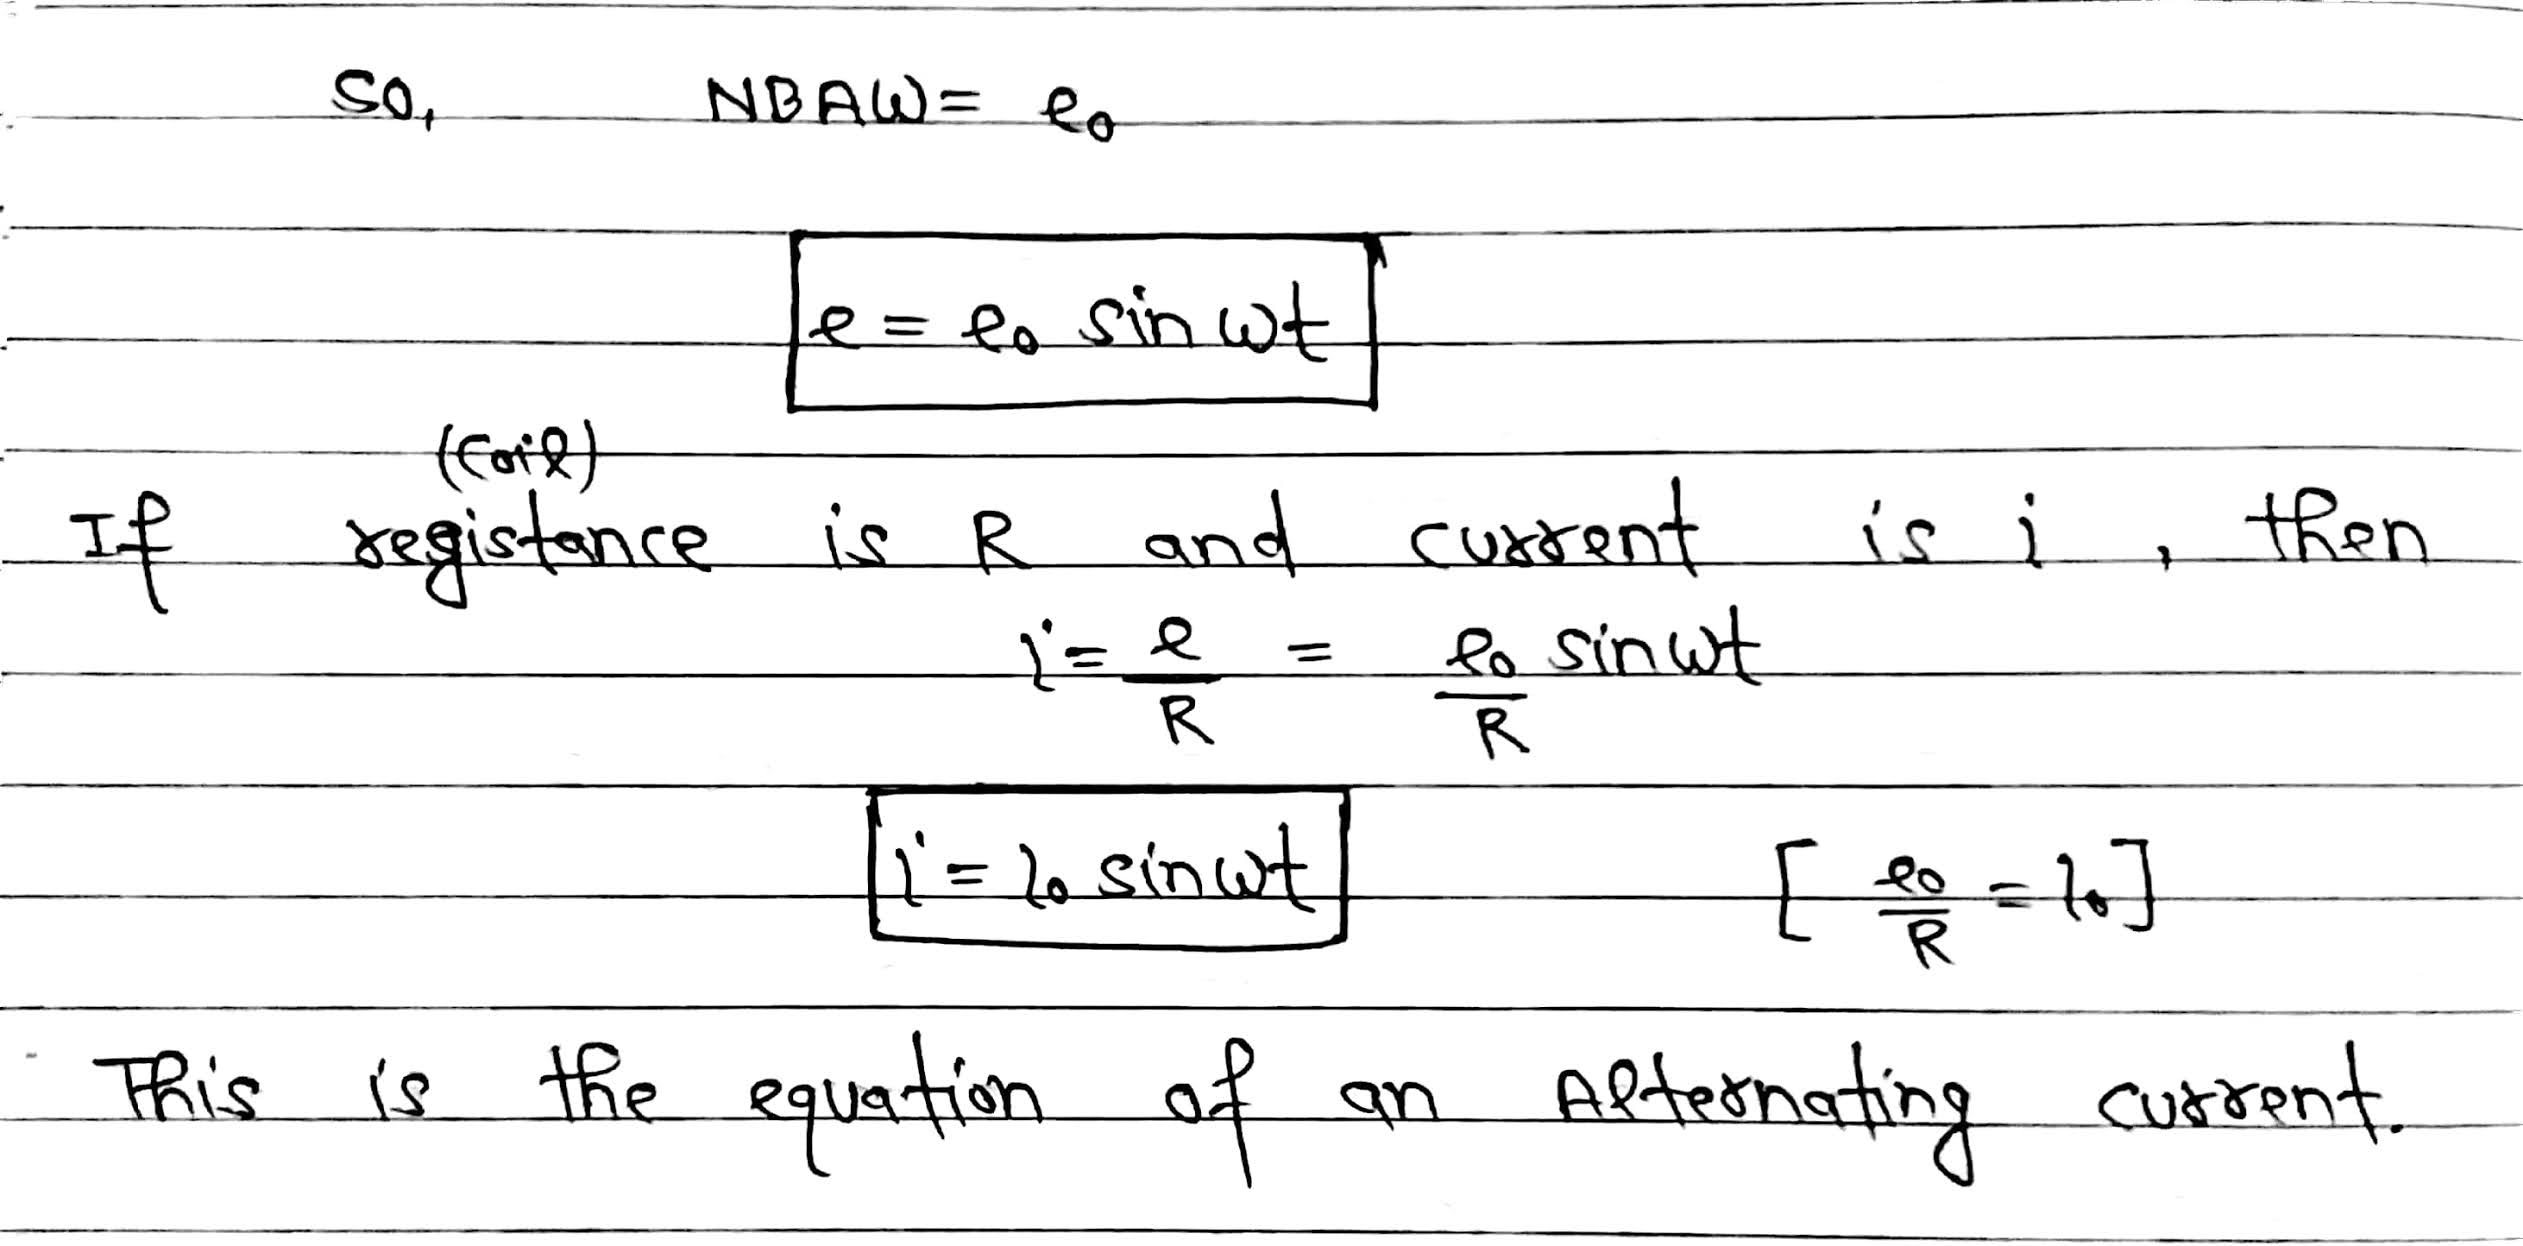 So, NBAω = e₀
e = e₀ sin ωt
(Coil)
If registance is R and current is i, then
i = e/R = e₀/R sin ωt
i = i₀ sin ωt [e₀/R = i₀]
This is the equation of an Alternating current.